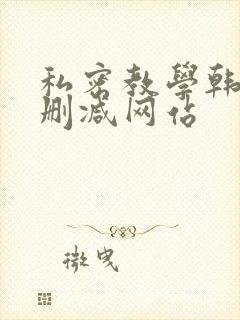 私密教學韩
删减网站
微曳